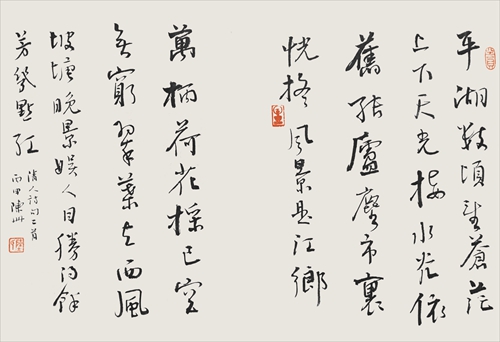 平湖數頃望蒼茫
上下天光接水光依
舊結廬塵市裏
恍 風景是江鄉
萬柄荷花採已空
無窮翠葉 西風
坡塘晚景娛人目勝得餘
芳幾點紅
清人詩句二首
丙申陳